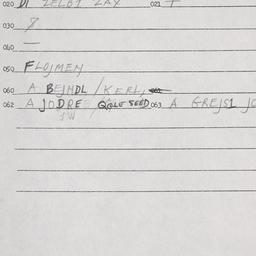 020 DI ZELBI ZAX 021 T
030 8
040 —
050 FLOJMEN
060 A BEJNDL / KERL,
062 A JODRE QOLE SEED 063 A GREJSI JO